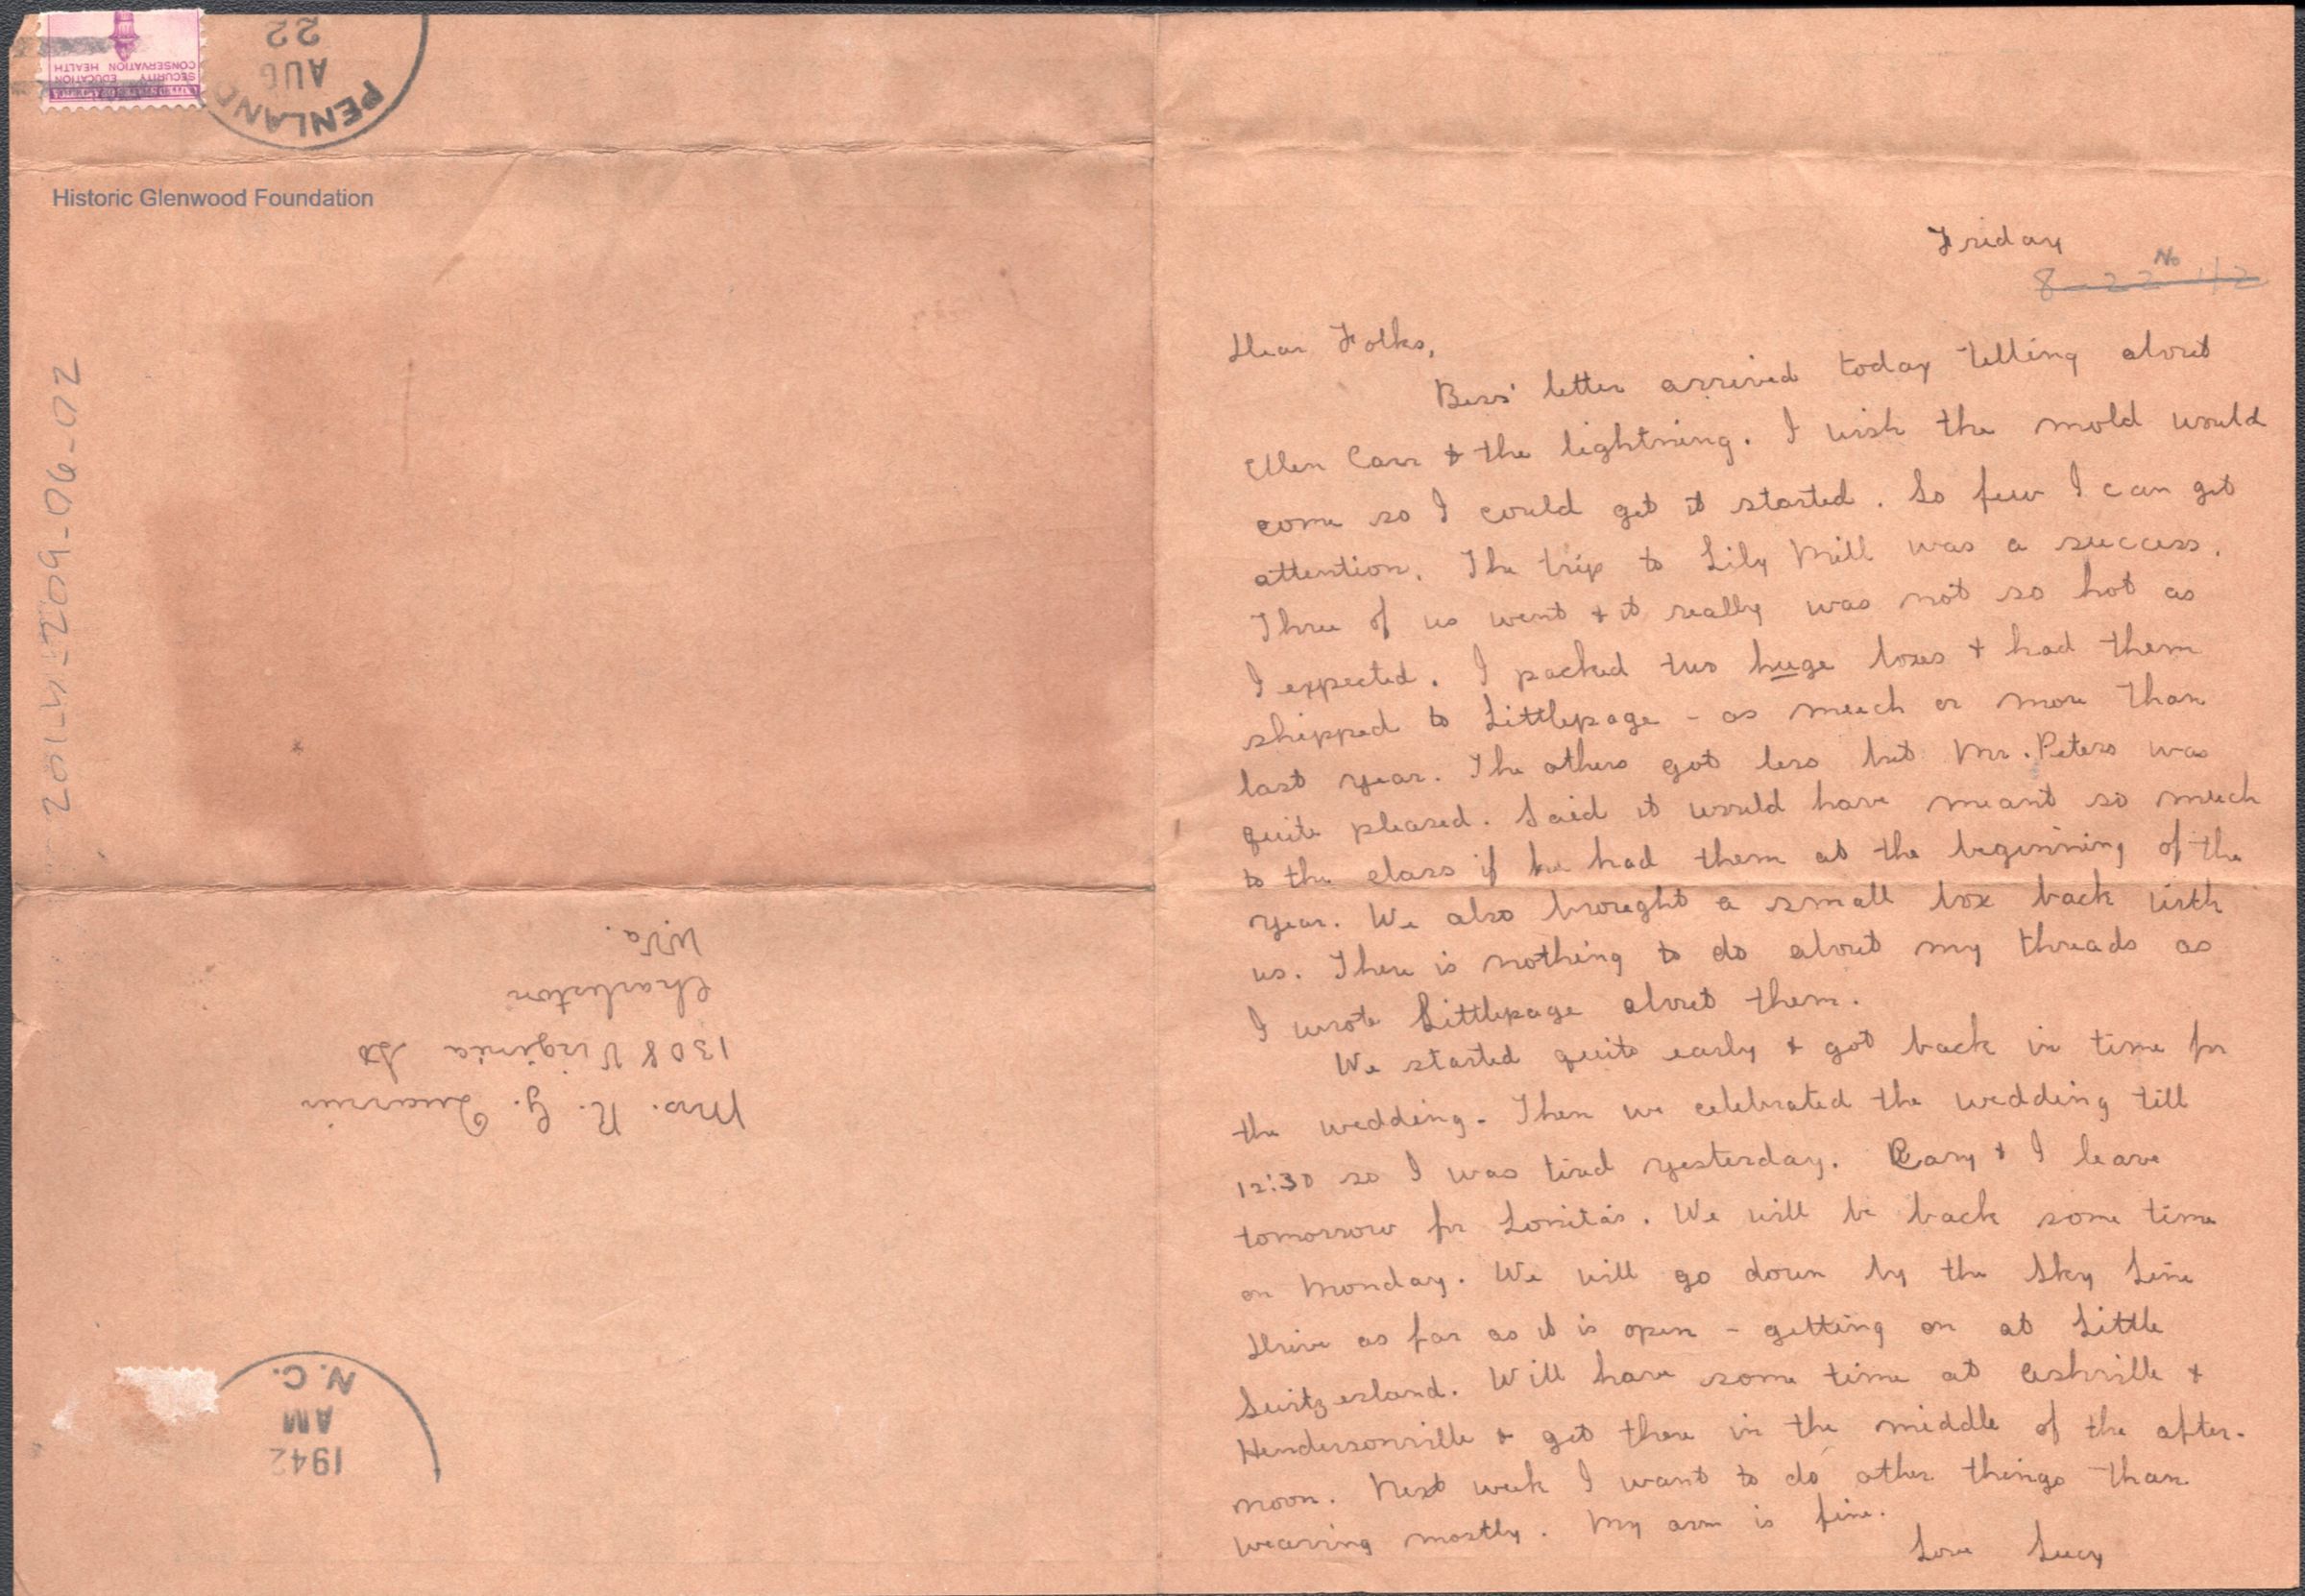 UNITED STATES POSTAGE
SECURITY EDUCATION
CONSERVATION HEALTH
PENLAND
AUG
22
Historic Glenwood Foundation
2014-4-2-09-06-02
W.Va.
Charleston
1308 Virginia St
Mrs. R. G. Quarrier
N.C.
AM
1942
Friday
No
8-22-42
Dear Folks,
Bess' letter arrived today telling about
Ellen Carr & the lightning. I wish the mold would
come so I could get it started. So few I can get
attention. The trip to Lily Mill was a success.
Three of us went & it really was not so hot as
I expected. I packed two huge boxes & had them
shipped to Littlepage - as much or more than
last year. The others got less but Mr. Peters was
quite pleased. Said it would have meant so much
to the class if he had them at the beginning of the
year. We also brought a small box back with
us. There is nothing to do about my threads as
I wrote Littlepage about them.
We started quite early & got back in time for
the wedding. Then we celebrated the wedding till
12:30 so I was tired yesterday. & I leave
tomorrow for Lonita's. We will be back some time
on Monday. We will go down by the Sky Line
Drive as far as it is open - getting on at Little
Switzerland. Will have some time at Ashville &
Hendersonville & get there in the middle of the after-
noon. Next week I want to do other things than
weaving mostly. My arm is fine.
Love Lucy